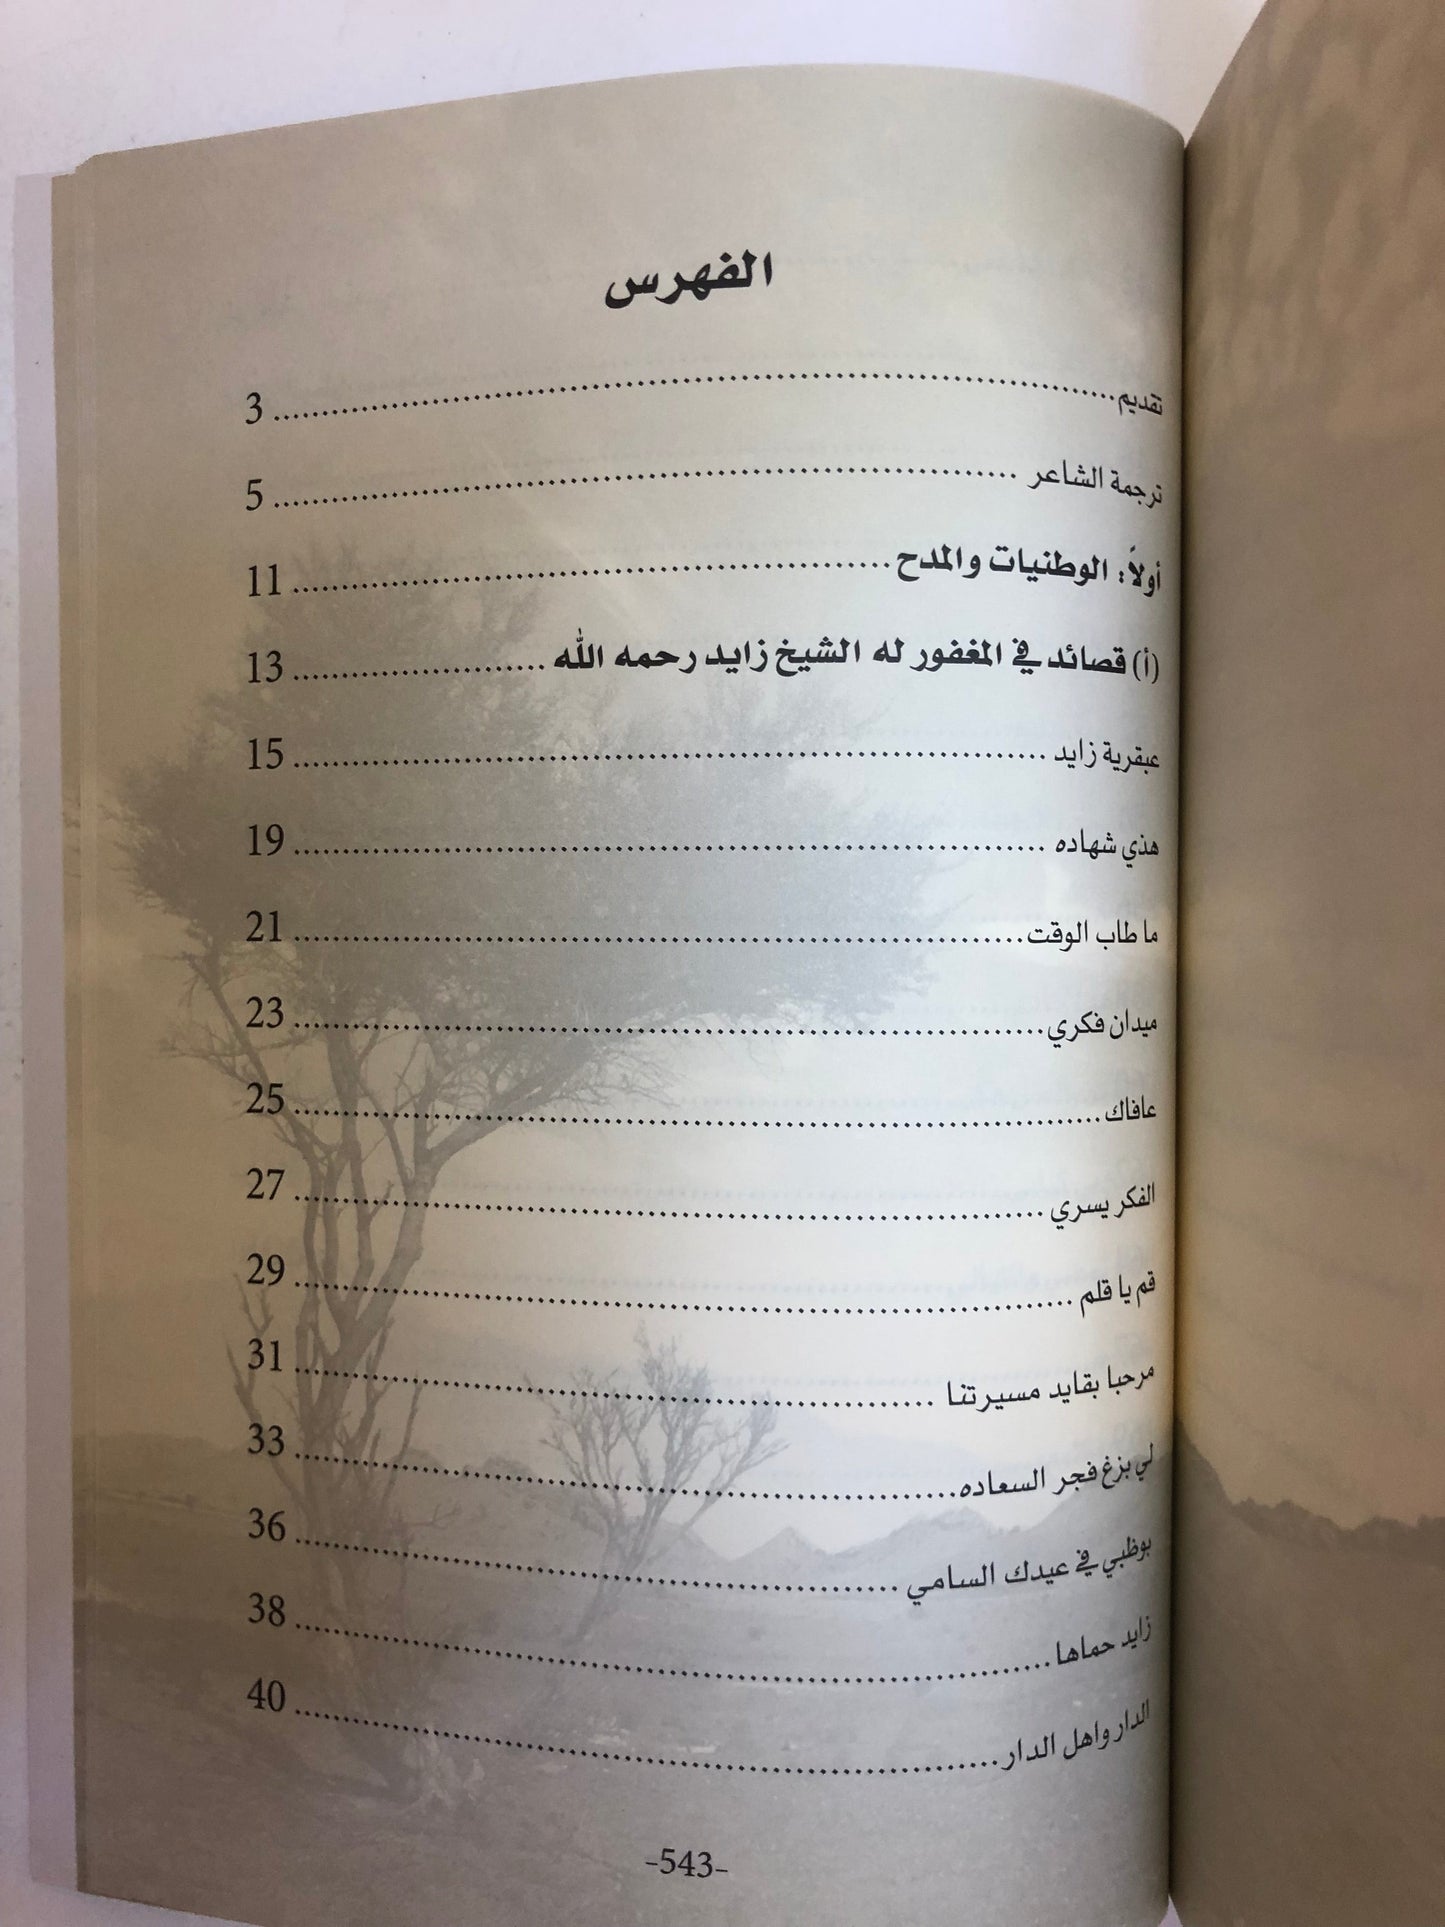 الفهرس
تقديم................................................................ 3
ترجمة الشاعر ................................................................ 5
أولاً: الوطنيات والمدح................................................ 11
(أ) قصائد في المغفور له الشيخ زايد رحمه الله ...................... 13
عبقرية زايد ............................................................ 15
هذي شهاده ............................................................ 19
ما طاب الوقت............................................................ 21
ميدان فكري............................................................ 23
عافاك................................................................ 25
الفكر يسري ............................................................ 27
قم يا قلم ............................................................ 29
مرحبا بقايد مسيرتنا .................................................. 31
لي بزغ فجر السعاده.................................................... 33
بوظبي في عيدك السامي .................................................. 36
زايد حماها............................................................ 38
الدار واهل الدار...................................................... 40
-543-